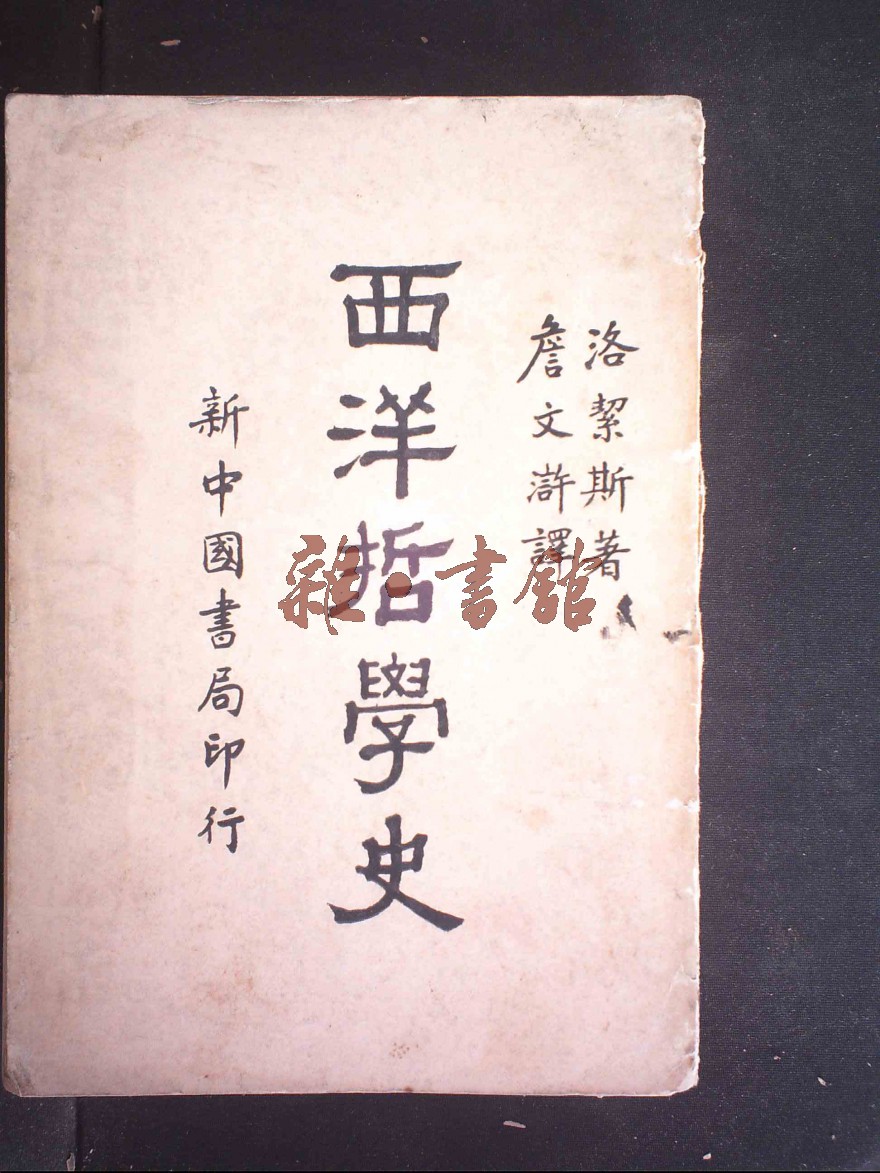 洛絜斯著
詹文滸譯
西洋哲學史
新中國書局印行
雜·書館